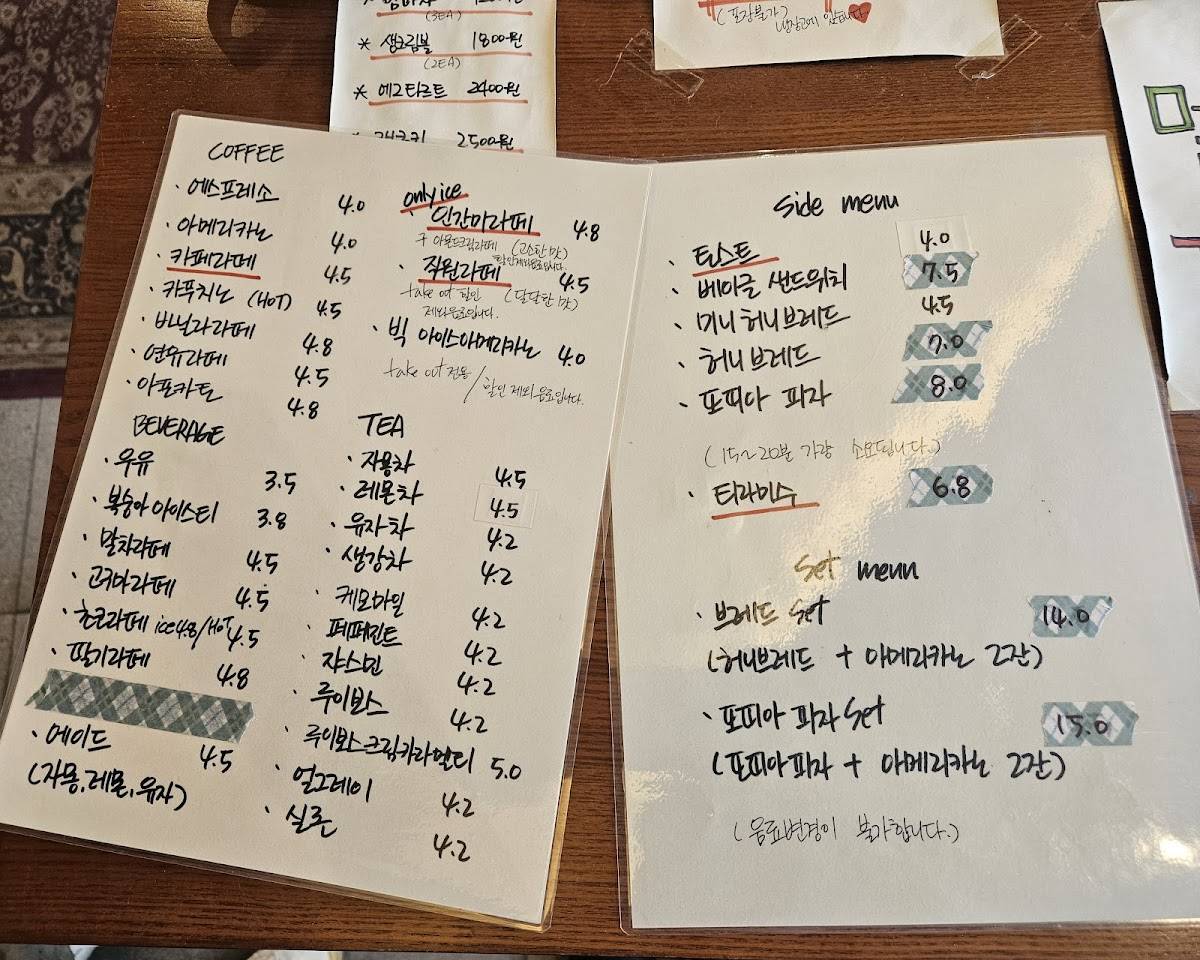 (3EA)
* 생크림볼 1800원
(2EA)
* 에그타르트 2400원
2500원
(포장불가)
냉장고에 있습니다
COFFEE
· 에스프레소 4.0
· 아메리카노 4.0
· 카페라떼 4.5
· 카푸치노 (HOT) 4.5
· 바닐라라떼 4.8
· 연유라떼 4.5
· 아포카토 4.8
only ice
· 인간미라떼 4.8
구 아몬드크림라떼 (고소한 맛)
할인제외음료입니다.
· 직원라떼 4.5
take out 할인 (달달한 맛)
제외음료입니다.
· 빅 아이스아메리카노 4.0
take out 전용 / 할인 제외 음료입니다.
BEVERAGE
· 우유 3.5
· 복숭아 아이스티 3.8
· 말차라떼 4.5
· 고구마라떼 4.5
· 초코라떼 ice 4.8/HOT 4.5
· 딸기라떼 4.8
· 에이드 4.5
(자몽, 레몬, 유자)
TEA
· 자몽차 4.5
· 레몬차 4.5
· 유자차 4.2
· 생강차 4.2
· 케모마일 4.2
· 페퍼민트 4.2
· 쟈스민 4.2
· 루이보스 4.2
· 루이보스크림카라멜티 5.0
· 얼그레이 4.2
· 실론 4.2
Side menu
· 토스트 4.0
· 베이글 샌드위치 7.5
· 미니 허니브레드 4.5
· 허니브레드 7.0
· 또띠아 피자 8.0
(15~20분 가량 소요됩니다.)
· 티라미수 6.8
Set menu
· 브레드 Set 14.0
(허니브레드 + 아메리카노 2잔)
· 또띠아 피자 Set 15.0
(또띠아피자 + 아메리카노 2잔)
(음료변경이 불가합니다.)